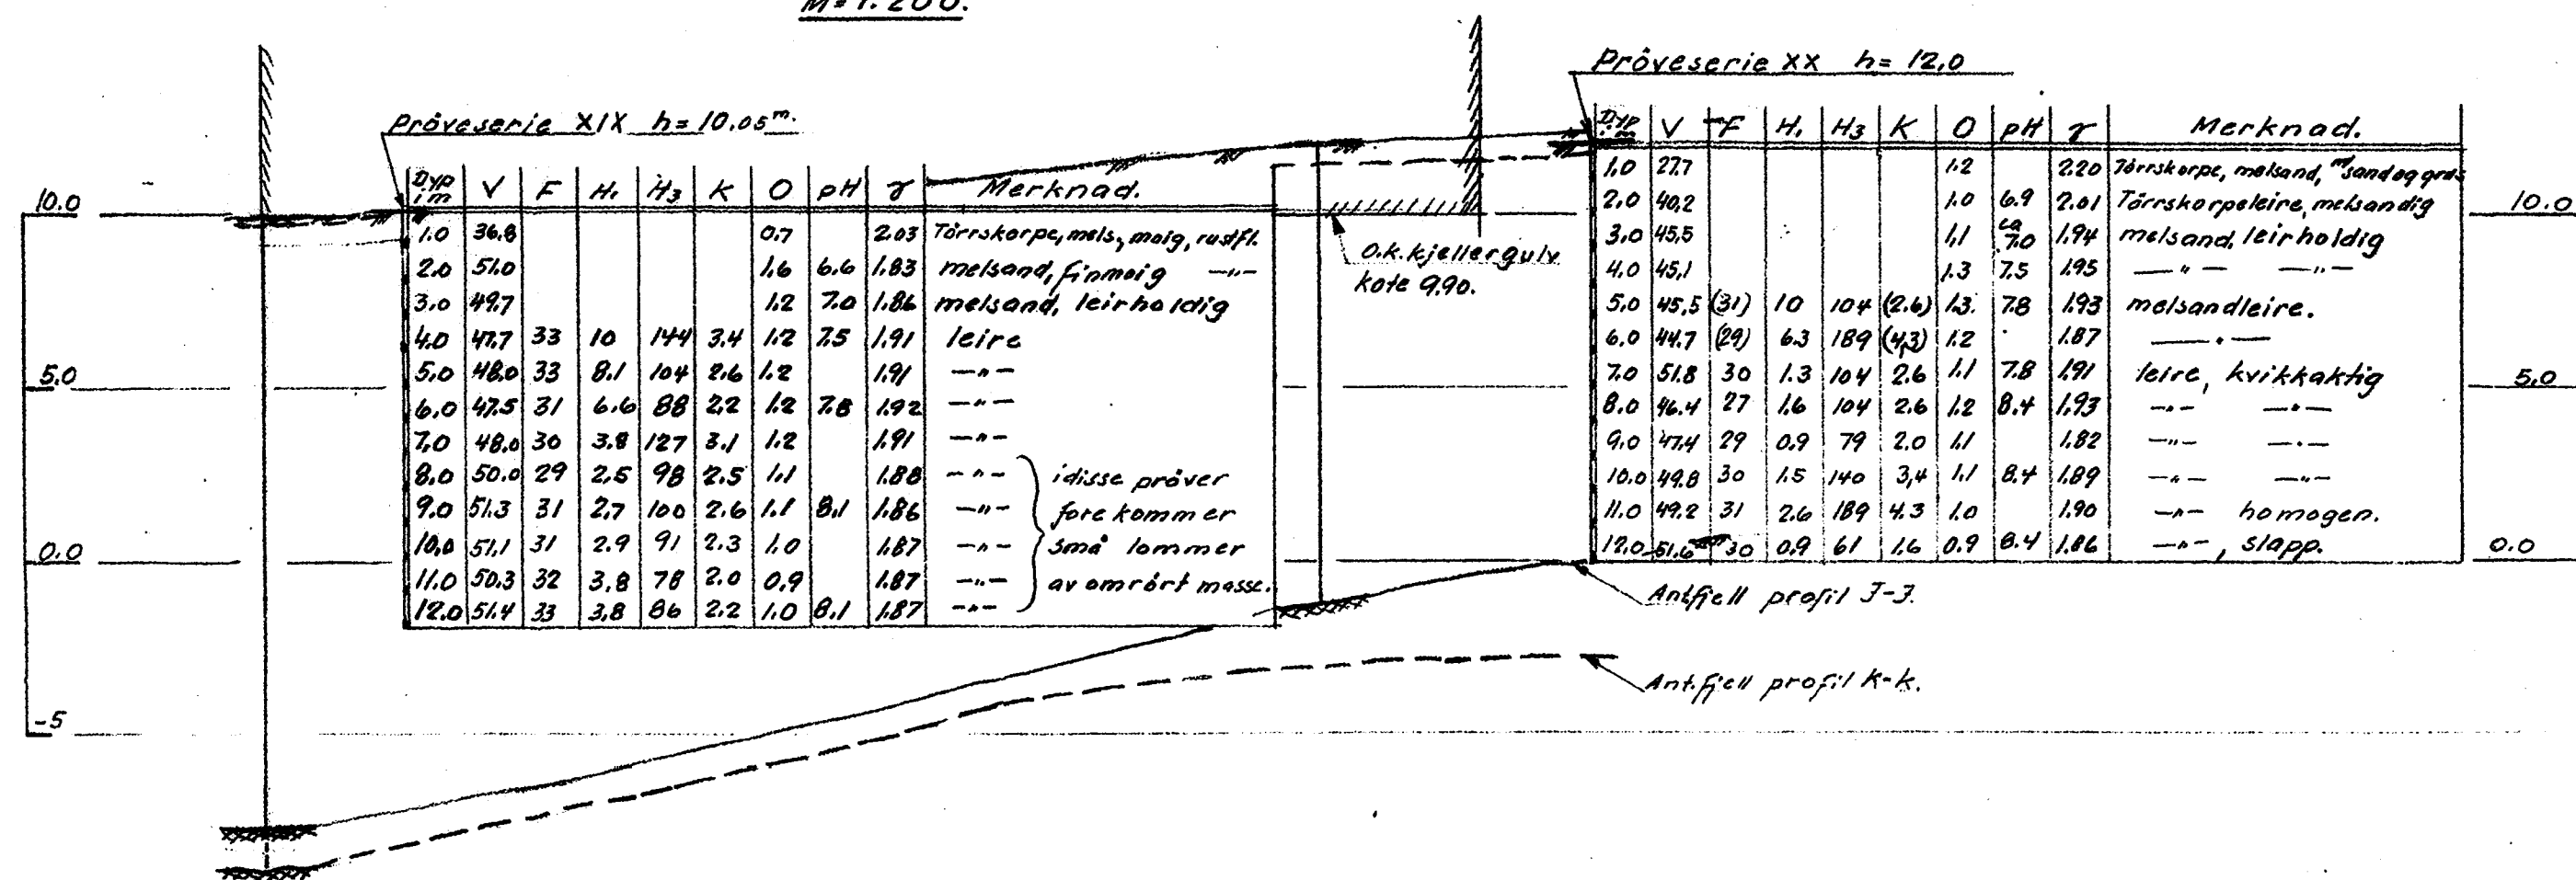 M=1:200.
Pröveserie XIX h=10.05 m.
Dyp i m V F H1 H3 K O pH γ Merknad.
1.0 36.8 0.7 2.03 Törrskorpe, mels., moig, rustfl.
2.0 51.0 1.6 6.6 1.83 melsand, finmoig —"—
3.0 49.7 1.2 7.0 1.86 melsand, leirholdig
4.0 47.7 33 10 144 3.4 1.2 7.5 1.91 leire
5.0 48.0 33 8.1 104 2.6 1.2 1.91 —"—
6.0 47.5 31 6.6 88 2.2 1.2 7.8 1.92 —"—
7.0 48.0 30 3.8 127 3.1 1.2 1.91 —"—
8.0 50.0 29 2.5 98 2.5 1.1 1.88 —"— i disse pröver
9.0 51.3 31 2.7 100 2.6 1.1 8.1 1.86 —"— fore kommer
10.0 51.1 31 2.9 91 2.3 1.0 1.87 —"— små lommer
11.0 50.3 32 3.8 78 2.0 0.9 1.87 —"— av omrört masse.
12.0 51.4 33 3.8 86 2.2 1.0 8.1 1.87 —"—
O.k. kjellergulv
kote 9.90.
Pröveserie XX h= 12,0
Dyp i m V F H1 H3 K O pH γ Merknad.
1.0 27.7 1.2 2.20 Törrskorpe, melsand, m/ sand og grus
2.0 40,2 1.0 6.9 2.01 Törrskorpeleire, melsandig
3.0 45,5 1,1 ca 7.0 1.94 melsand, leirholdig
4.0 45,1 1.3 7.5 1.95 —"— —"—
5.0 45,5 (31) 10 104 (2.6) 1.3. 7.8 1.93 melsandleire.
6.0 44.7 (29) 6.3 189 (4,3) 1.2 1.87 —"—
7.0 51.8 30 1.3 104 2.6 1.1 7.8 1.91 leire, kvikkaktig
8.0 46.4 27 1.6 104 2.6 1.2 8.4 1.93 —"— —"—
9.0 47.4 29 0.9 79 2.0 1.1 1.82 —"— —"—
10.0 49.8 30 1.5 140 3,4 1.1 8.4 1.89 —"— —"—
11.0 49.2 31 2.6 189 4.3 1.0 1.90 —"— homogen.
12.0 51.6 30 0.9 61 1.6 0.9 8.4 1.86 —"—, slapp.
10.0
5.0
0.0
-5
10.0
5.0
0.0
Ant.fjell profil J-J.
Ant.fjell profil K-K.